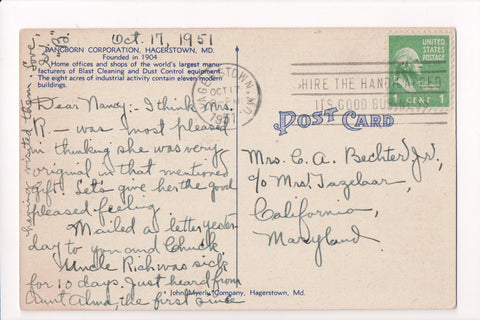 Oct. 17, 1951
PANGBORN CORPORATION, HAGERSTOWN, MD.
Founded in 1904
Home offices and shops of the world's largest manu-
facturers of Blast Cleaning and Dust Control equipment.
The eight acres of industrial activity contain eleven modern
buildings.
Dear Nancy:- I think Mrs.
R.- was most pleased
in thinking she was very
original in that mentioned
gift. Let's give her the good
pleased feeling
Mailed a letter yester-
day to you and Chuck
Uncle Rich was sick
for 10 days. Just heard from
Aunt Alma, the first since
having visited them. Love,
HAGERSTOWN, MD.
OCT 17
1951
HIRE THE HANDICAPPED
ITS GOOD BUSINESS
UNITED STATES
POSTAGE
1 CENT 1
POST CARD
Mrs. C. A. Bechter Jr,
c/o Mrs. Tazelaar,
California,
Maryland.
John Myerly Company, Hagerstown, Md.